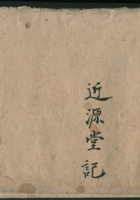 近源堂記